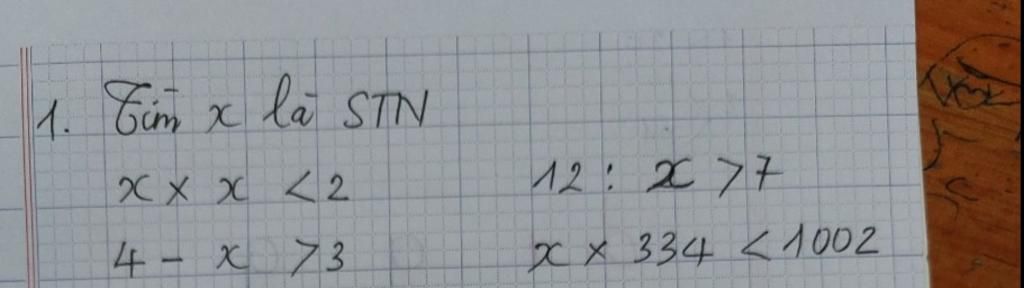 1. Tìm x là STN
x × x < 2 12 : x > 7
4 - x > 3 x × 334 < 1002